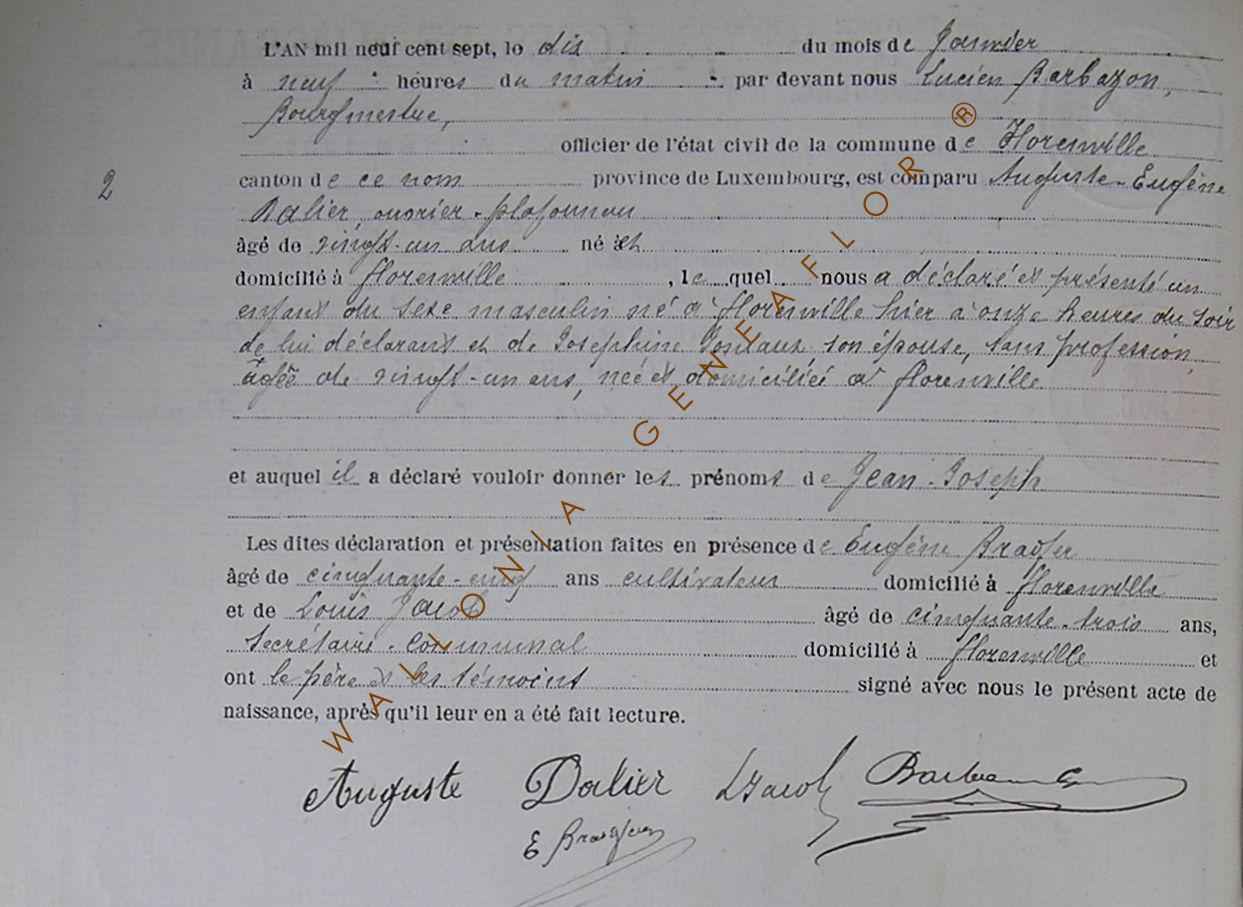 L'AN mil neuf cent sept, le dix du mois de Janvier
à neuf heures du matin par devant nous Lucien Barbazon,
Bourgmestre,
officier de l'état civil de la commune de Florenville
2
canton de ce nom province de Luxembourg, est comparu Auguste-Eugène
Dalier, ouvrier-plafonneur
âgé de vingt-un ans né à et
domicilié à Florenville, lequel nous a déclaré et présenté un
enfant du sexe masculin né à Florenville hier à onze heures du soir
de lui déclarant et de Joséphine son épouse, sans profession,
âgée de vingt-un ans, née et domiciliée à Florenville
et auquel il a déclaré vouloir donner les prénoms de Jean-Joseph
Les dites déclaration et présentation faites en présence de Eugène
âgé de cinquante-neuf ans cultivateur domicilié à Florenville
et de Louis Jacob âgé de cinquante-trois ans,
Secrétaire-communal domicilié à Florenville et
ont le père et les témoins signé avec nous le présent acte de
naissance, après qu'il leur en a été fait lecture.
Auguste Dalier LJacob
E
WALLONIA GENEAFLOR ®